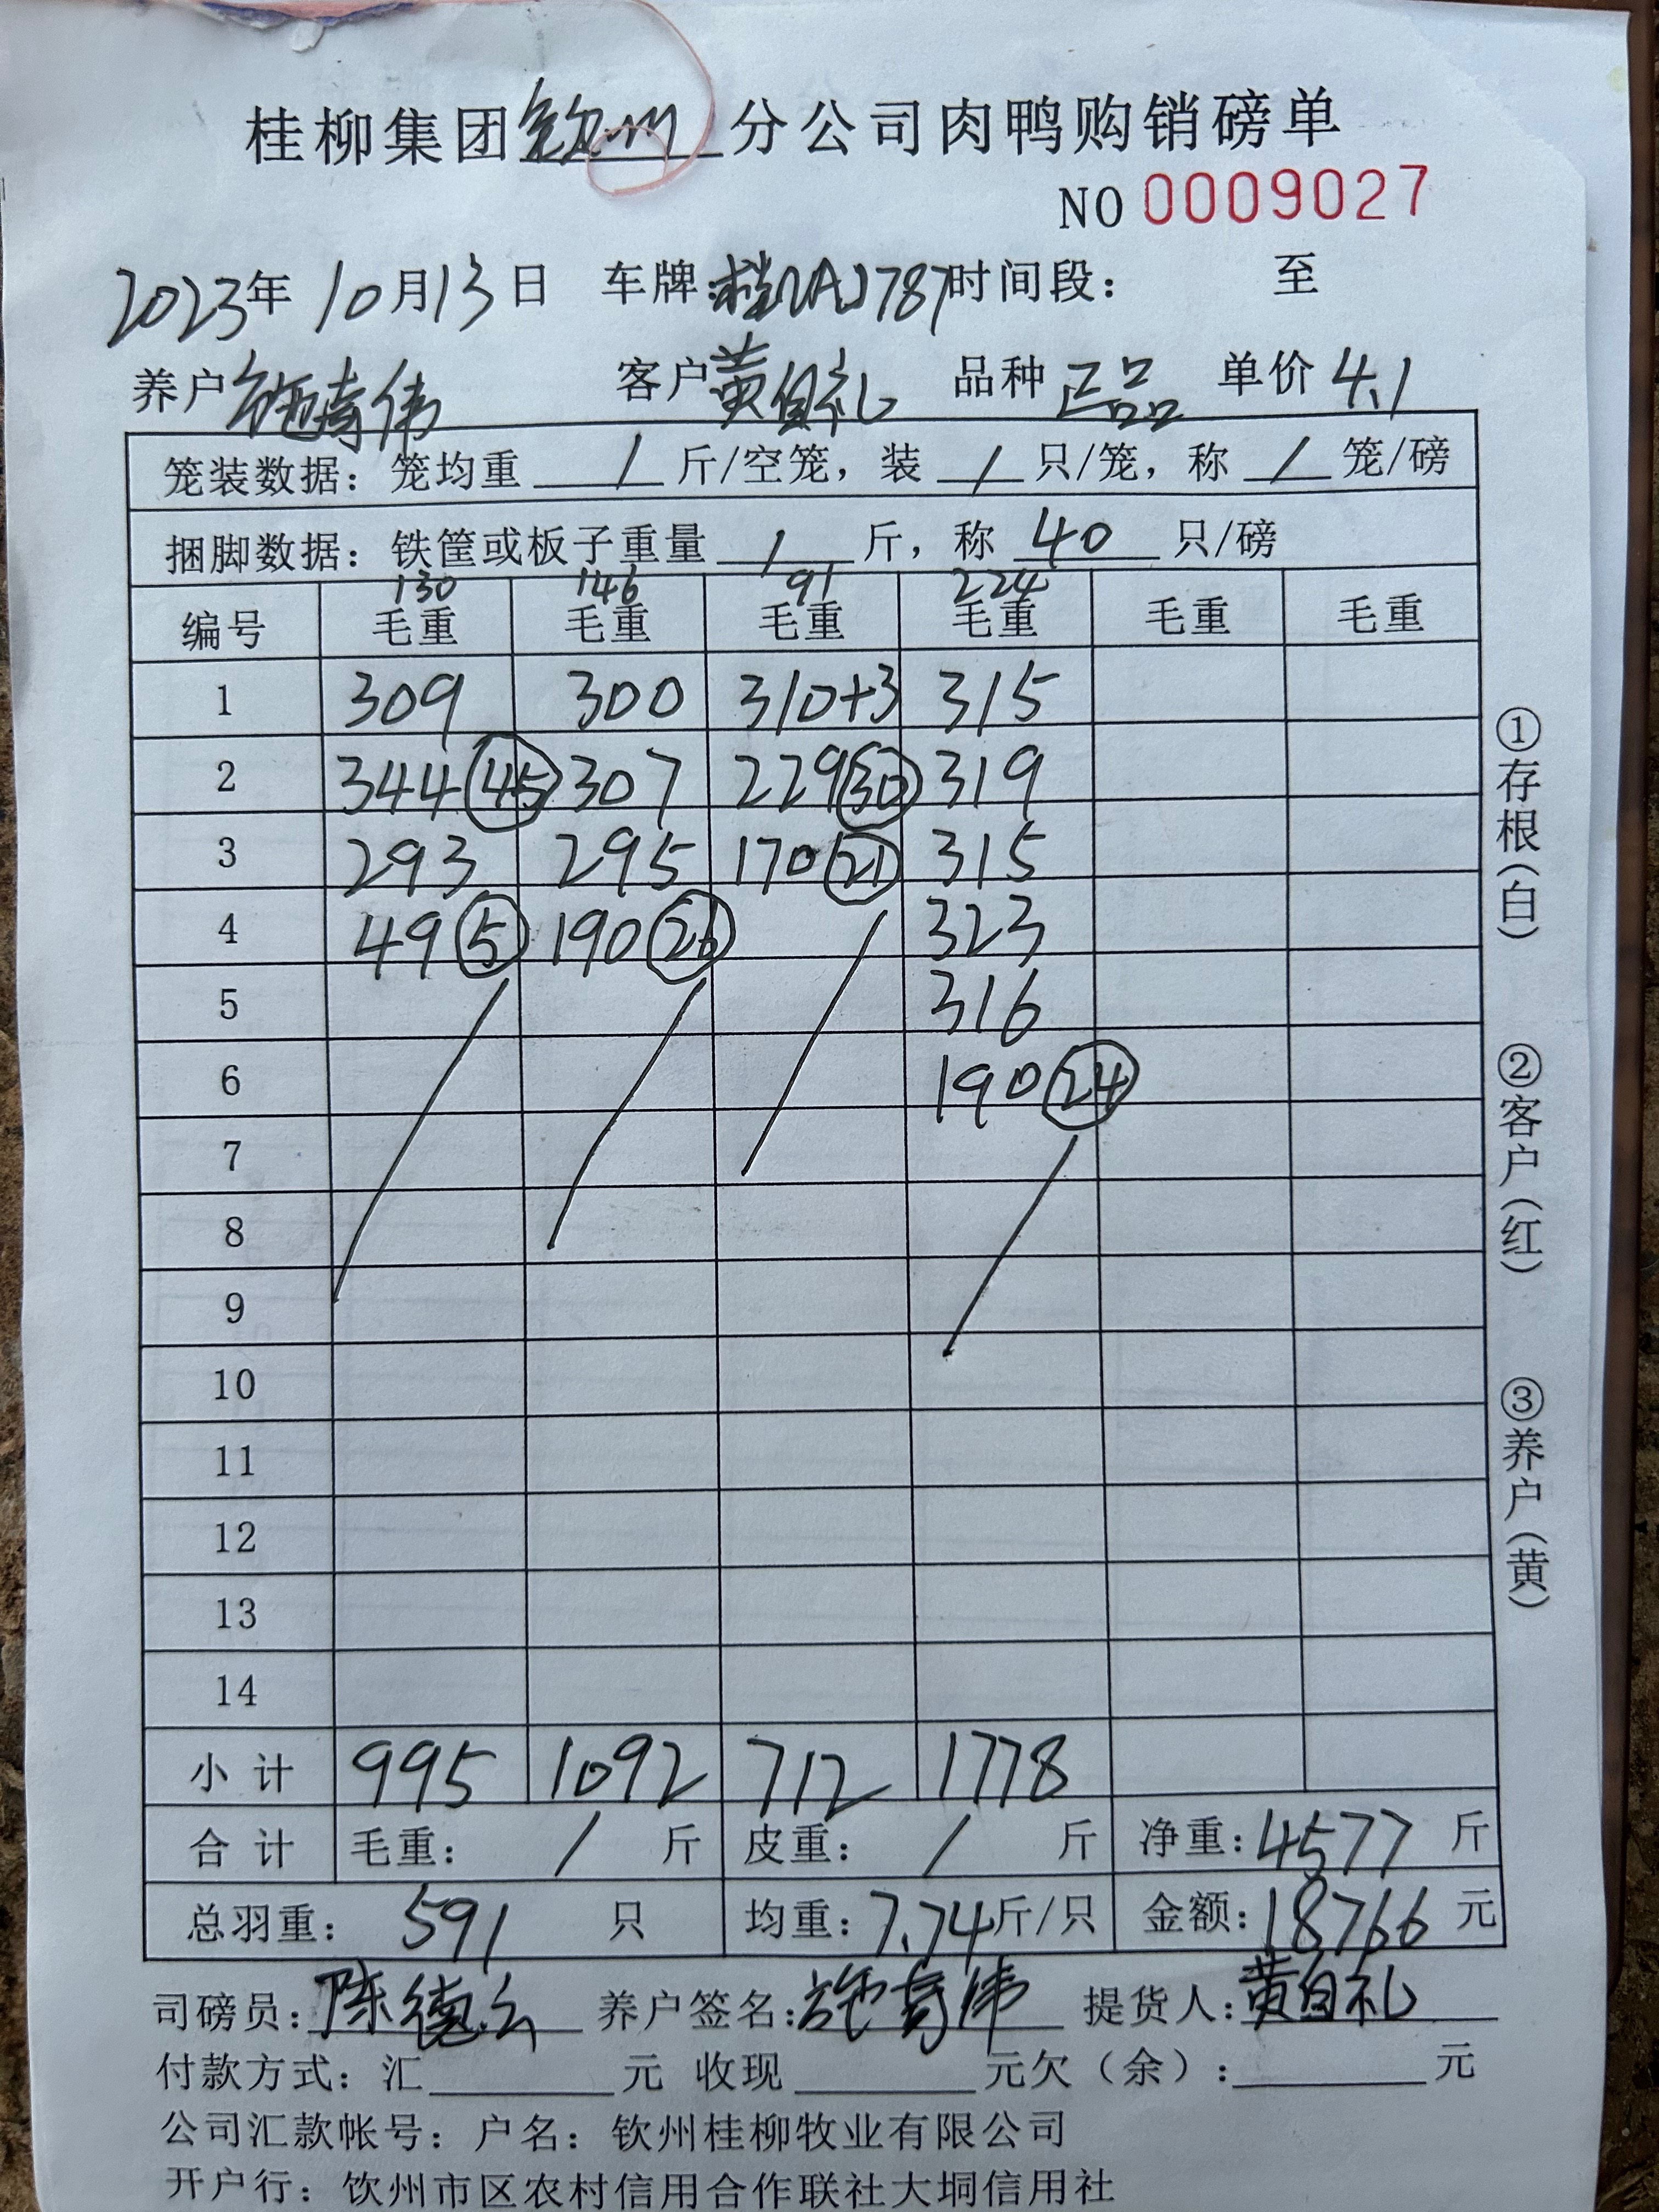 桂柳集团钦州分公司肉鸭购销磅单
NO 0009027
2023年10月13日 车牌: 787 时间段: 至
养户 施奇伟 客户 黄自礼 品种 正品 单价 4.1
笼装数据: 笼均重 / 斤/空笼, 装 / 只/笼, 称 / 笼/磅
捆脚数据: 铁筐或板子重量 / 斤, 称 40 只/磅
130 146 91 224
编号 毛重 毛重 毛重 毛重 毛重 毛重
1 309 300 310+3 315
2 344 45 307 229 30 319
3 293 295 170 21 315
4 49 5 190 26 323
5 316
6 190 24
7
8
9
10
11
12
13
14
小计 995 1092 712 1778
合计 毛重: / 斤 皮重: / 斤 净重: 4577 斤
总羽重: 591 只 均重: 7.74 斤/只 金额: 18766 元
司磅员: 陈德云 养户签名: 施奇伟 提货人: 黄自礼
付款方式: 汇 元 收现 元欠(余): 元
公司汇款帐号: 户名: 钦州桂柳牧业有限公司
开户行: 钦州市区农村信用合作联社大垌信用社
①存根(白)
②客户(红)
③养户(黄)